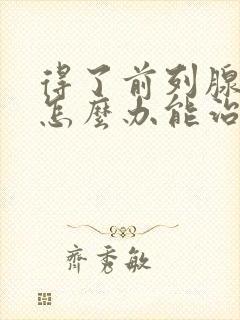 得了前列腺
怎麼办能治
齊秀敏